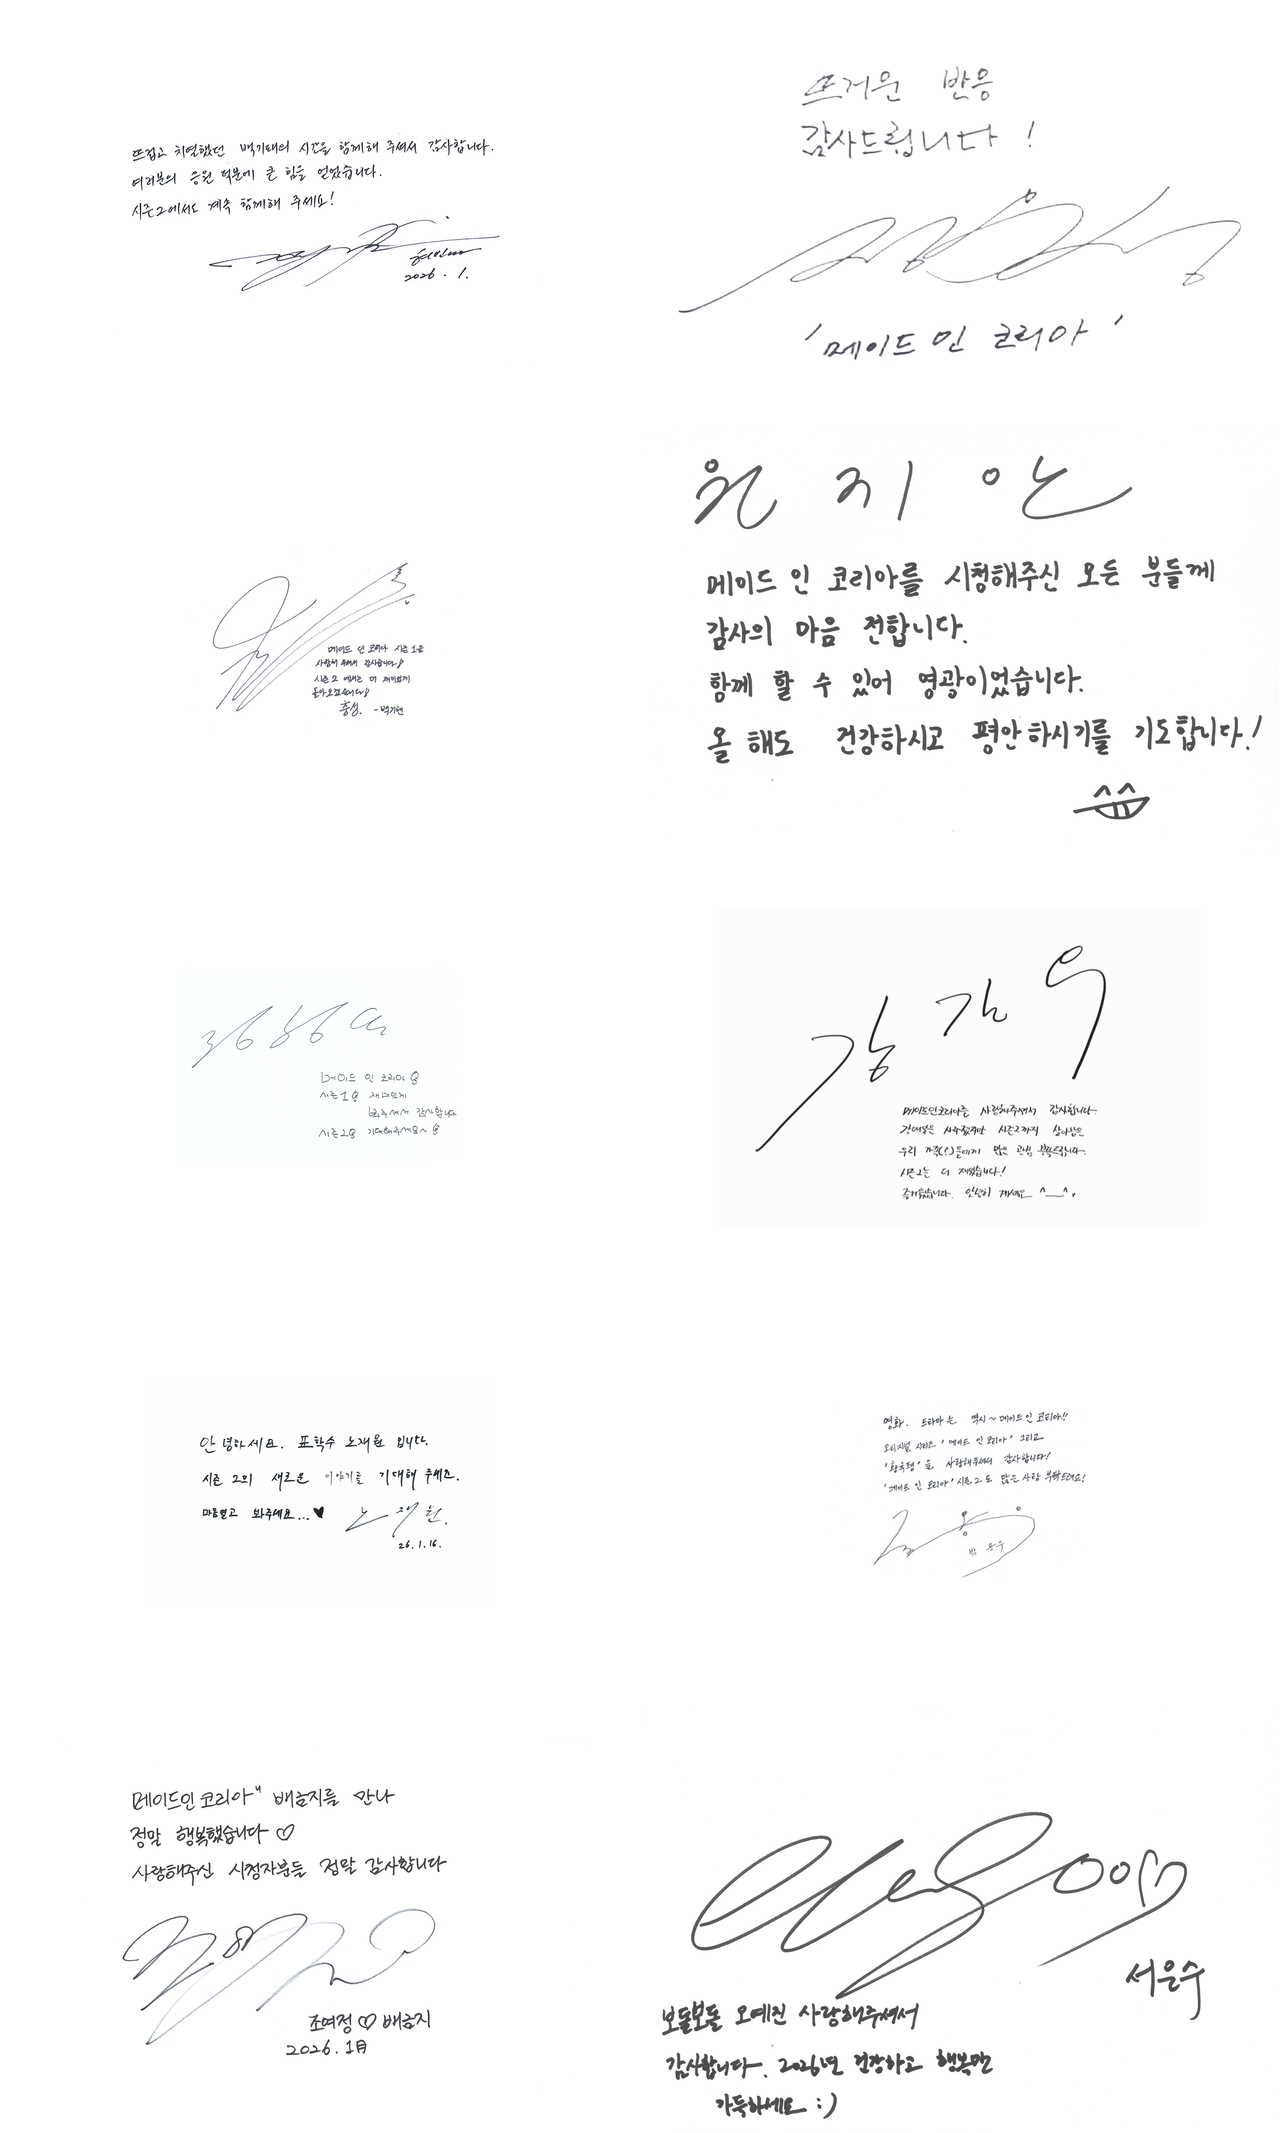 뜨겁고 치열했던 백기태의 시간을 함께해 주셔서 감사합니다.
여러분의 응원 덕분에 큰 힘을 얻었습니다.
시즌2에서도 계속 함께해 주세요!
현빈
2026. 1.
뜨거운 반응
감사드립니다!
'메이드 인 코리아'
메이드 인 코리아 시즌 1을
사랑해 주셔서 감사합니다!
시즌 2 에서는 더 재미있게
돌아오겠습니다!
충성. -백기현
원지안
메이드 인 코리아를 시청해주신 모든 분들께
감사의 마음 전합니다.
함께 할 수 있어 영광이었습니다.
올 해도 건강하시고 평안하시기를 기도합니다!
메이드 인 코리아
시즌1 재미있게
봐주셔서 감사합니다
시즌2 기대해주세요~
강길우
메이드인코리아를 사랑해주셔서 감사합니다.
강대일은 사라졌지만 시즌2까지 살아남은
우리 가족(?)들에게 많은 관심 부탁드립니다.
시즌2는 더 재밌습니다!
즐거웠습니다. 안녕히 계세요 ^__^,
안녕하세요. 표학수 노재원 입니다.
시즌 2의 새로운 이야기를 기대해 주세요.
마음열고 봐주세요...♥ 노재원.
26.1.16.
영화. 드라마는 역시~메이드 인 코리아!!
오리지널 시리즈 '메이드 인 코리아' 그리고
'황국평'을 사랑해주셔서 감사합니다!
'메이드 인 코리아' 시즌2도 많은 사랑 부탁드려요!
박용우
메이드인 코리아" 배금지를 만나
정말 행복했습니다 ♡
사랑해주신 시청자분들 정말 감사합니다
조여정 ♡ 배금지
2026. 1月
서은수
보돌보돌 오예진 사랑해주셔서
감사합니다. 2026년 건강하고 행복만
가득하세요 :)